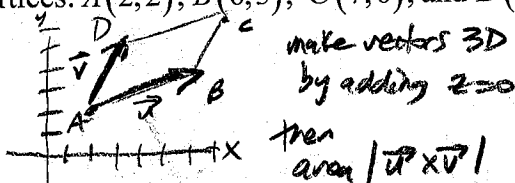 rtices: A(2,2), B(6,3), C(7,6), and D(
y
D
C
v
make vectors 3D
by adding z=0
A
u
B
x
then
area |u⃗ × v⃗|